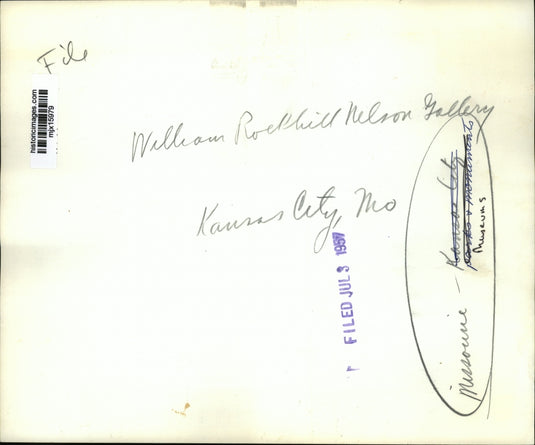 File
historicimages.com
mjx15979
William Rockhill Nelson Gallery
Kansas City, Mo
FILED JUL 3 1957
Missourie - Kansas City
parks + monuments
Museums